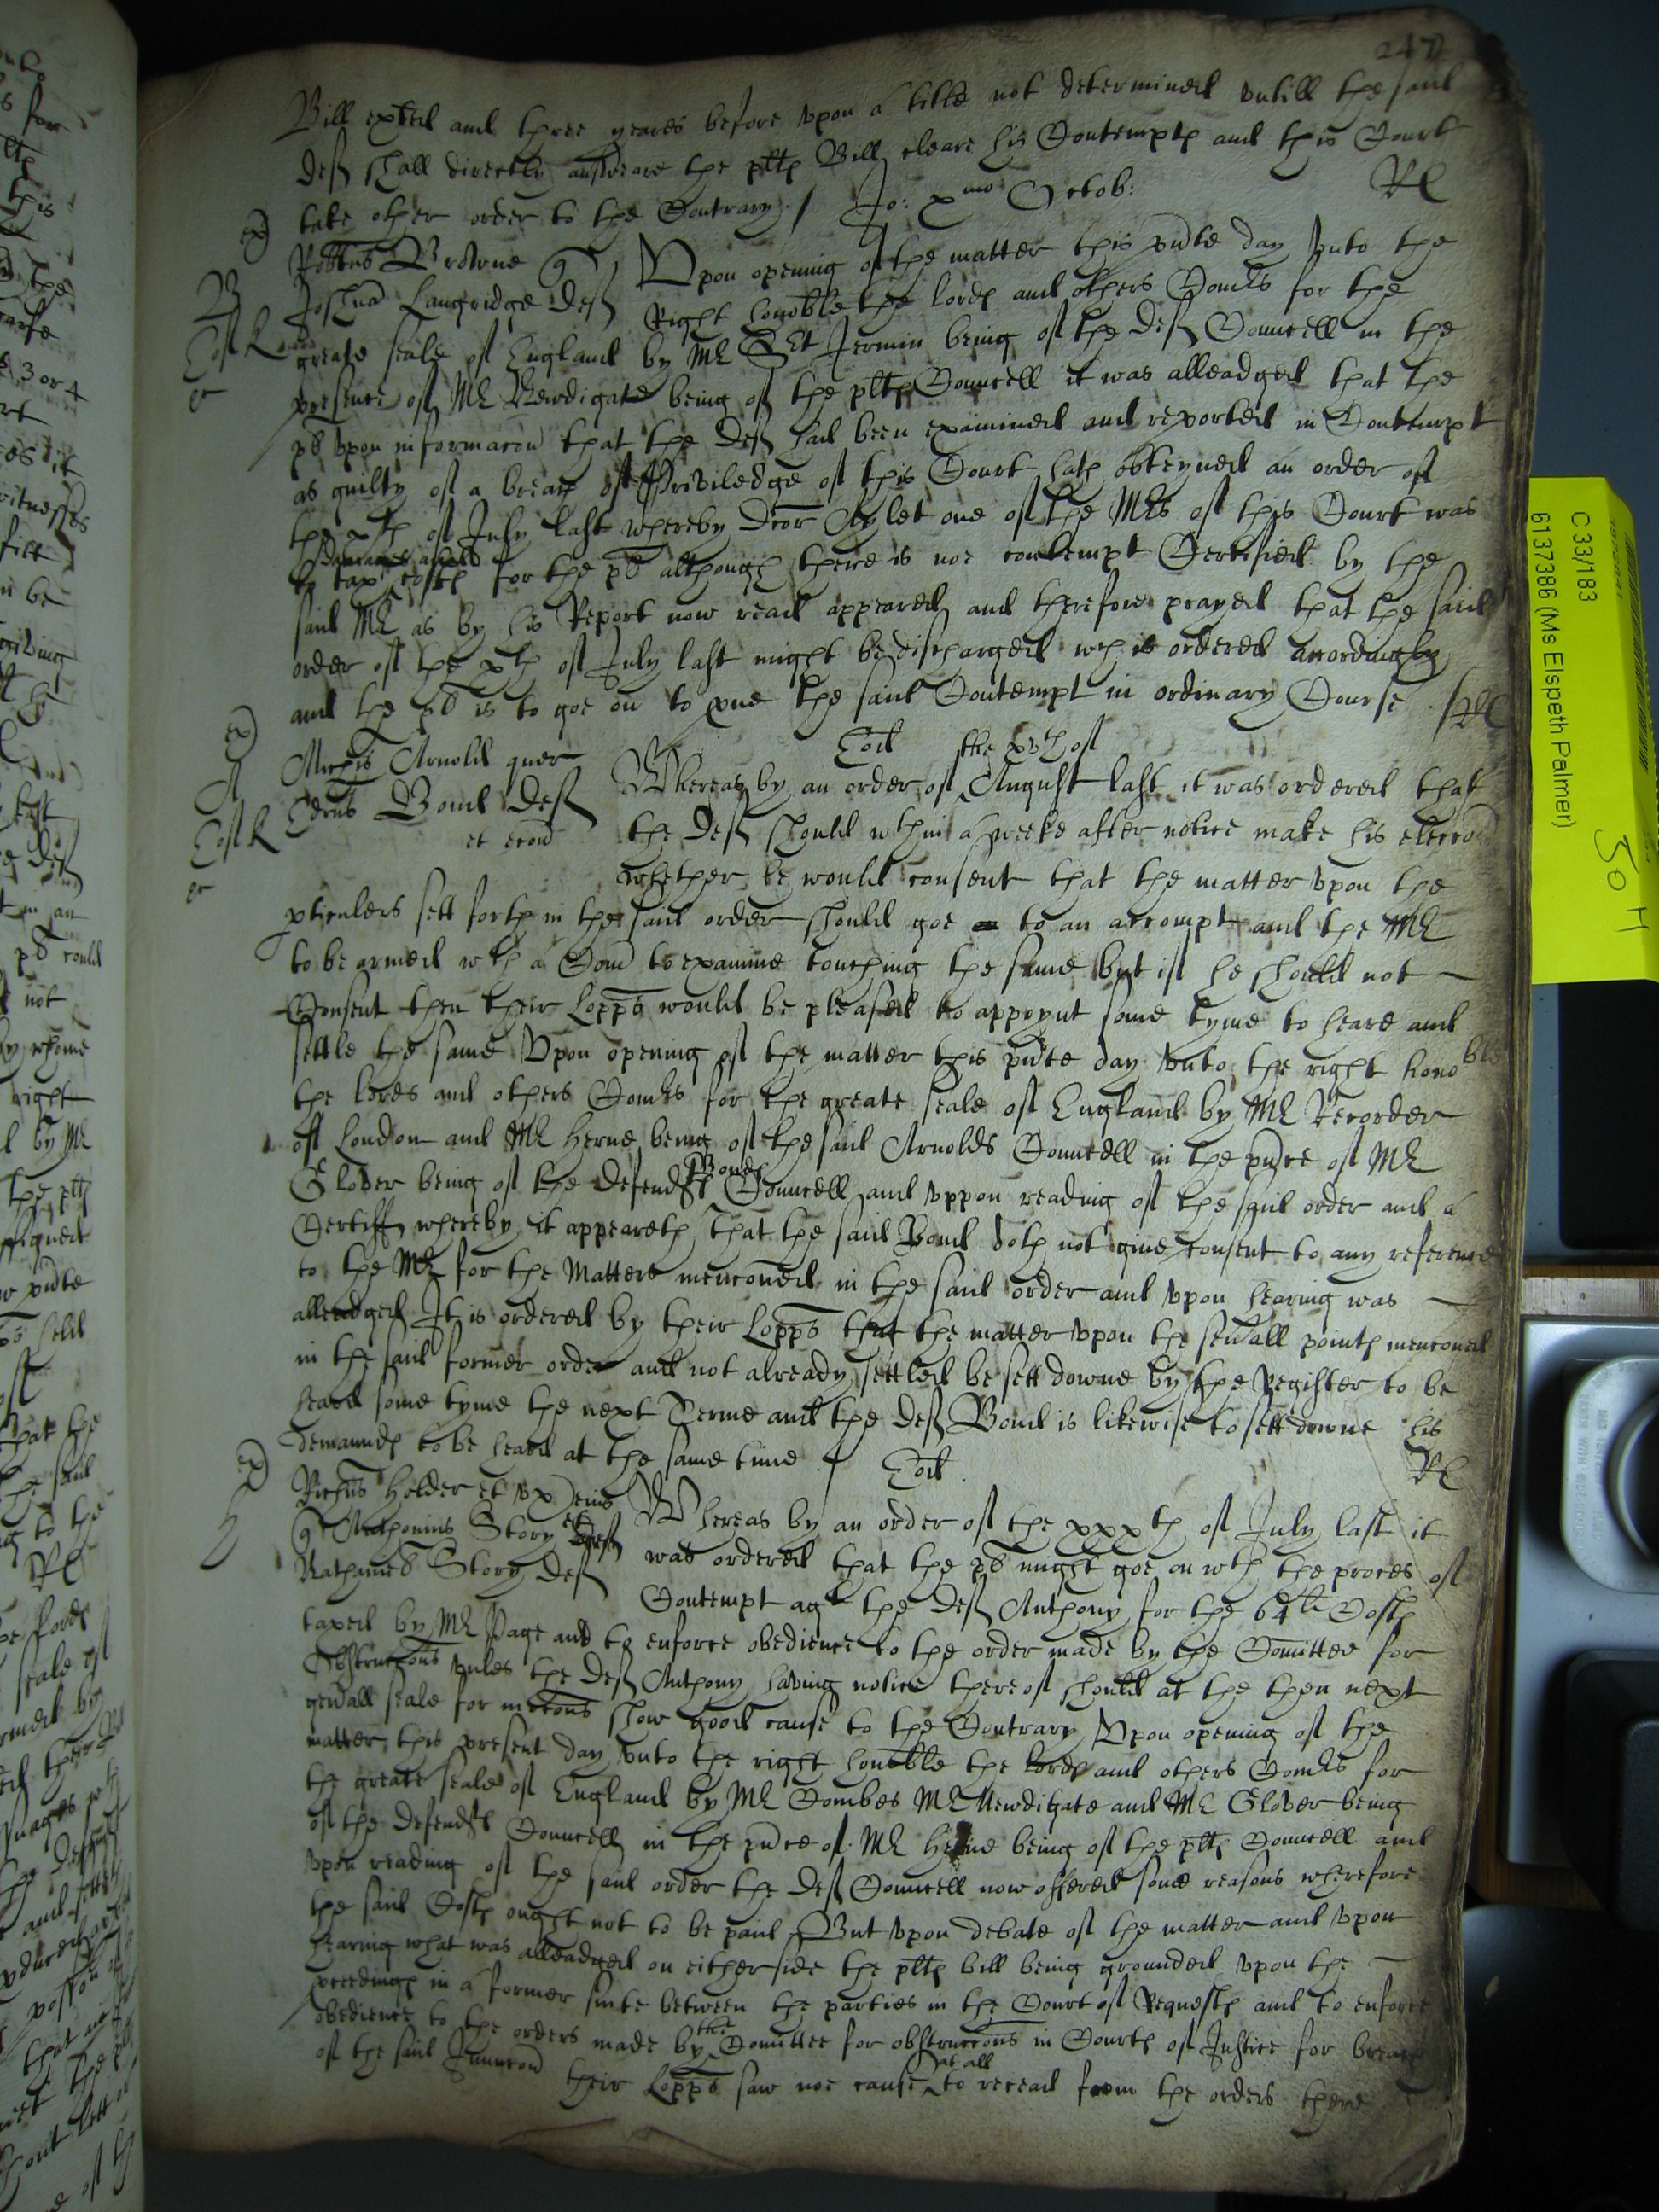 247
Bill exhted and three yeares before vpon a title not determined vntill the said
Deft shall directly answeare the pltes Bill cleare his Contempte and this Court
take other order to the Contrary / Jo: xmo Octob: Rl
ex
Robtus Browne q
Joshua Langridge Deft
B
Vpon opening of the matter this pnte day vnto the
Right honoble the lordes and others Comrs for the
greate seale of England by Mr Srt Jermin being of the Deft Councell in the
presence of Mr Newdigate being of the pltes Councell it was alleadged that the
pl vpon informacon that the Deft had been examined and reported in Contempt
as guilty of a breach of Priviledge of this Court hath obteyned an order of
the xth of July last whereby Dcor Aylet one of the Mrs of this Court was
to tax costes for the pl although there is noe contempt Certified by the
said Mr as by his Report now read appeared and therefore prayed that the said
order of the xth of July last might be discharged wch is ordered accordingly
and the pl is to goe on to pue the said Contempt in ordinary Course / Rl
ex
A
Arnold quer
Edrus Bond Deft
et econ
Eod
the xvth of
Whereas by an order of August last it was ordered that
the Deft should wthin a weeke after notice make his eleccon
whether he would consent that the matter vpon the
pticulers sett forth in the said order should goe to an accompt and the Mr
to be armed wth a Com to examine touching the same but if he should not
Consent then their Lopps would be pleased to appoynt some tyme to heare and
settle the same Vpon opening of the matter this pnte day vnto the right honoble
the lordes and others Comrs for the greate seale of England by Mr Recorder
of London and Mr Herne being of the said Arnolds Councell in the pnce of Mr
Glover being of the defendt Bondes Councell and vppon reading of the said order and a
Certiff whereby it appeareth that the said Bond doth not give consent to any reference
to the Mr for the Matters menconed in the said order and vpon hearing was
alleadged It is ordered by their Lopps that the matter vpon the seuall pointes menconed
in the said former order and not already settled be sett downe by the Register to be
heard some tyme the next Terme and the Deft Bond is likewise to sett downe his
demaundes to be heard at the same time / Eod Rl
ex
H
Richus Holder et vx eius
q Anthonius Story et
Nathaniel Story Deft
Whereas by an order of the xxxth of July last it
was ordered that the pl might goe on wth the proces of
Contempt agt the Deft Anthony for the 64li Costes
taxed by Mr Page and to enforce obedience to the order made by the Comittee for
Obstruccons vnles the Deft Anthony having notice thereof should at the then next
genall seale for mocons show good cause to the Contrary Vpon opening of the
matter this present day vnto the right honoble the lordes and others Comrs for
the greate seale of England by Mr Combes Mr Newdigate and Mr Glover being
of the defendtes Councell in the pnce of Mr Herne being of the pltes Councell and
vpon reading of the said order the Deft Councell now offered some reasons wherefore
the said Costes ought not to be paid But vpon debate of the matter and vpon
hearing what was alleadged on either side the pltes bill being grounded vpon the
pceedinges in a former suite between the parties in the Court of Requests and to enforce
obedience to the orders made by the Comittee for obstruccons in Courtes of Justice for breach
of the said Iniunccon their Lopps saw noe cause at all to recead from the orders there
C 33/183
6137386 (Ms Elspeth Palmer)
50 H